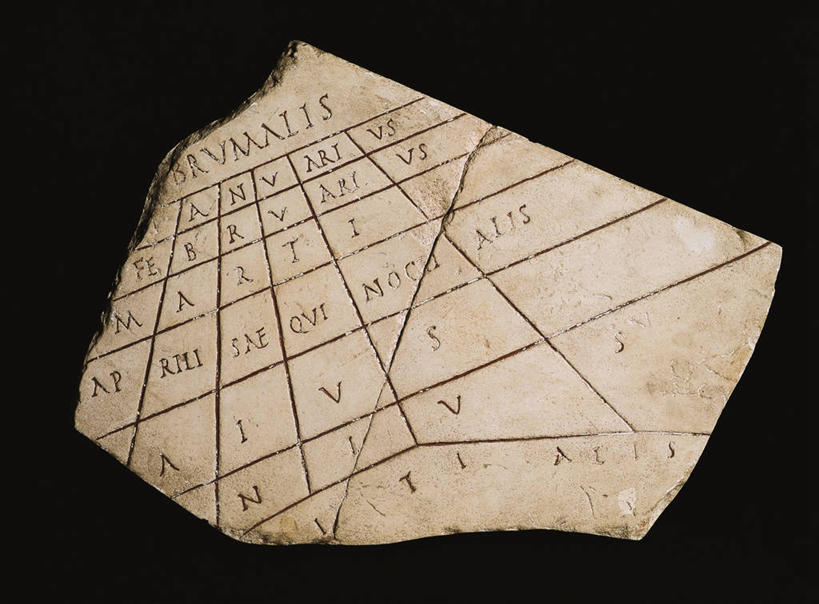 BRVMALIS
A N V ARI VS
FE B R V ARI VS
M A R T I
AP RILI SAE QVI NOCTI ALIS
A I V S
N I V S
I T I A L I S